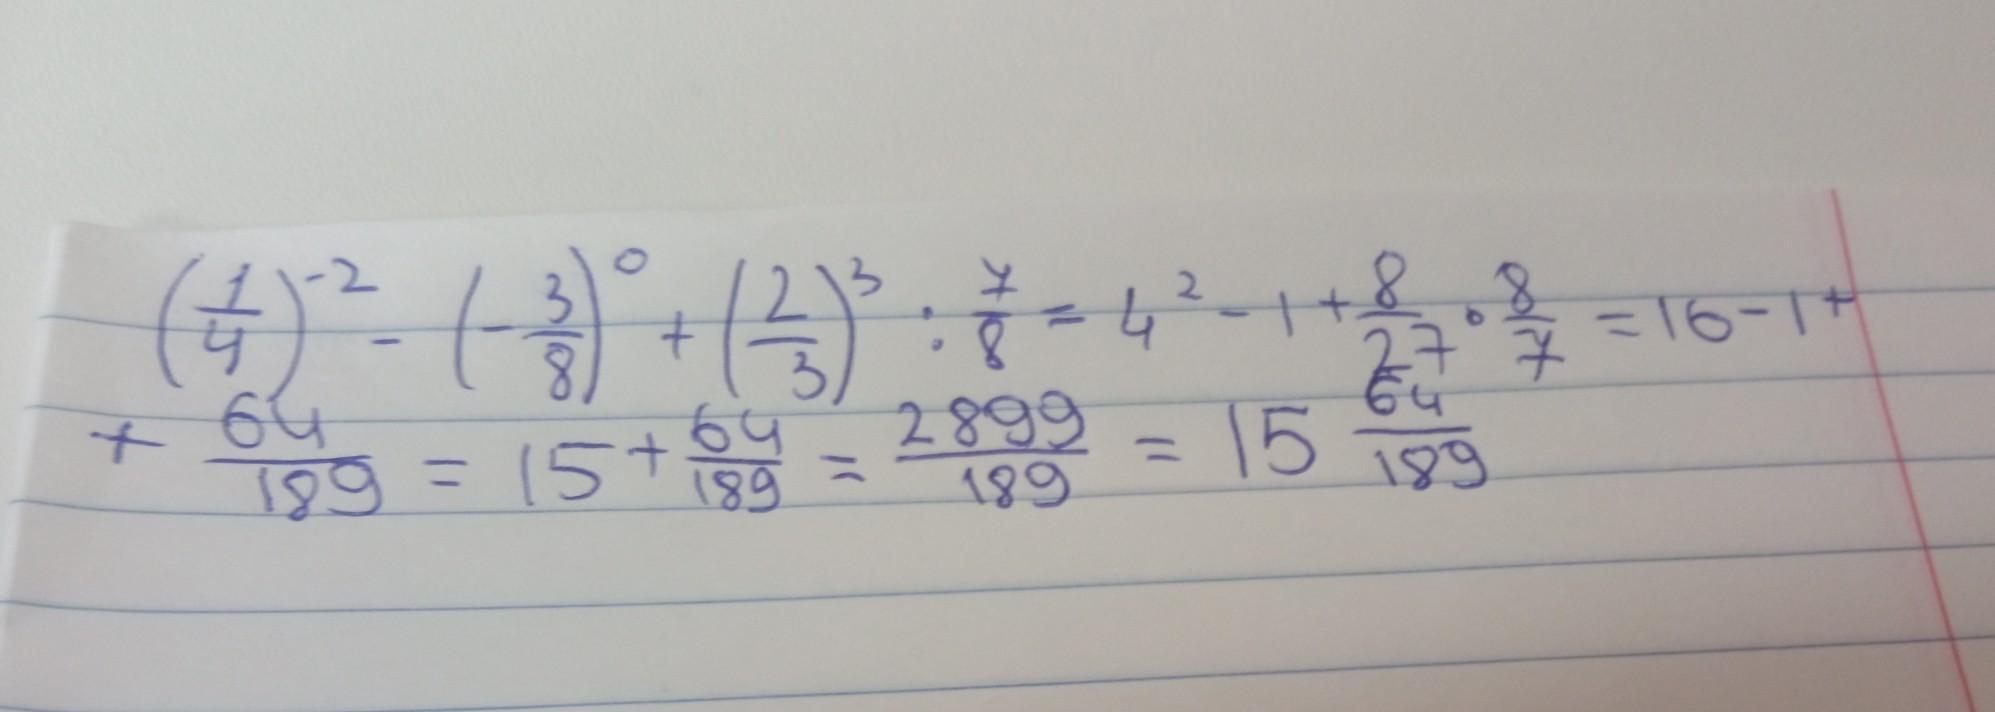 (1/4)^-2 - (-3/8)^0 + (2/3)^3 : 7/8 = 4^2 - 1 + 8/27 · 8/7 = 16 - 1 +
+ 64/189 = 15 + 64/189 = 2899/189 = 15 64/189